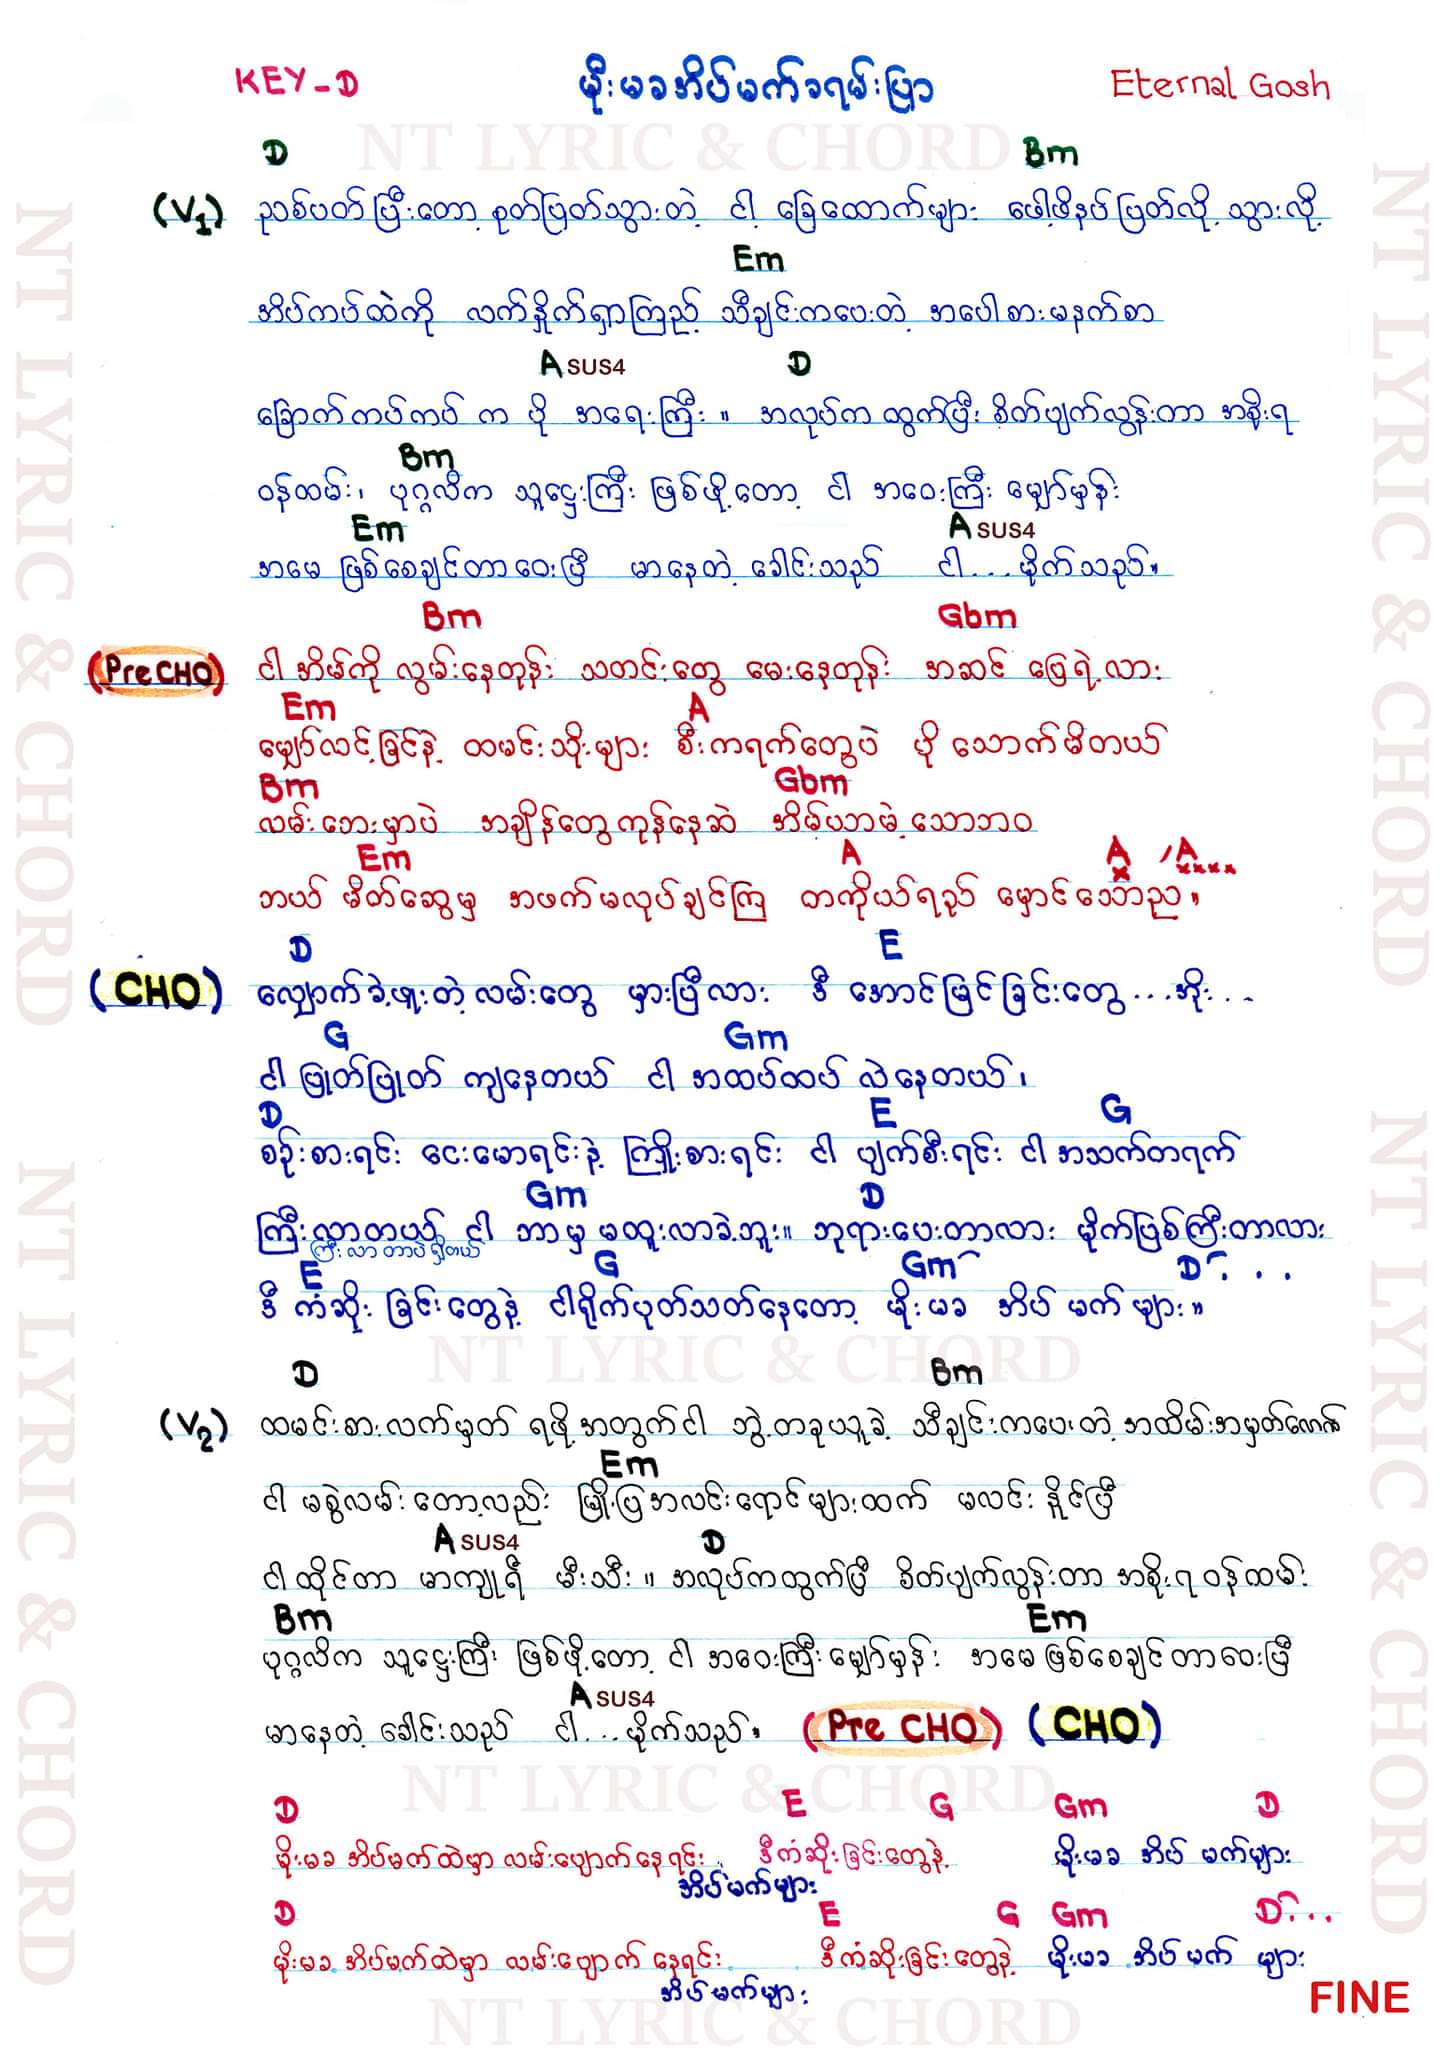 KEY-D မိုးမခအိပ်မက်ခရမ်းပြာ Eternal Gosh
NT LYRIC & CHORD
D Bm
(V1) ညစ်ပတ်ပြီးတော့ စုတ်ပြတ်သွားတဲ့ ငါ့ ခြေထောက်များ ဖေါ့ဖိနပ်ပြတ်လို့ သွားလို့
Em
အိပ်ကပ်ထဲကို လက်နှိုက်ရှာကြည့် သီချင်းကပေးတဲ့ အပေါစားမနက်စာ
A SUS4 D
ခြောက်ကပ်ကပ် က ပို အရေးကြီး ။ အလုပ်က ထွက်ပြီး စိတ်ပျက်လွန်းတာ အစိုးရ
Bm
ဝန်ထမ်း၊ ပုဂ္ဂလိက သူဌေးကြီး ဖြစ်ဖို့တော့ ငါ အဝေးကြီး မျှော်မှန်း
Em A SUS4
အမေ ဖြစ်စေချင်တာဝေးပြီ မာနေတဲ့ ခေါင်းသည် ငါ...မိုက်သည်။
Bm Gbm
(Pre CHO) ငါ အိမ်ကို လွမ်းနေတုန်း သတင်းတွေ မေးနေတုန်း အဆင် ပြေရဲ့လား
Em A
မျှော်လင့်ခြင်နဲ့ ထမင်းသိုးများ စီးကရက်တွေပဲ ပို သောက်မိတယ်
Bm Gbm
လမ်းဘေးမှာပဲ အချိန်တွေကုန်နေဆဲ အိမ်ပြာမဲ့သောဘဝ
Em A A ,A
ဘယ် မိတ်ဆွေမှ အဖက်မလုပ်ချင်ကြ တကိုယ်ရည် မှောင်သောည။
D E
(CHO) လျှောက်ခဲ့ဖူးတဲ့လမ်းတွေ မှားပြီလား ဒီ အောင်မြင်ခြင်းတွေ...အိုး...
G Gm
ငါ ပြုတ်ပြုတ် ကျနေတယ် ငါ အထပ်ထပ် လဲနေတယ်၊
D E G
စဉ်းစားရင်း ငေးမောရင်းနဲ့ ကြိုးစားရင်း ငါ ပျက်စီးရင်း ငါ အသက်တရက်
Gm D
ကြီးလာတယ် ငါ ဘာမှ မထူးလာခဲ့ဘူး။ ဘုရားပေးတာလား မိုက်ပြစ်ကြီးတာလား
ကြီးလာတာပဲရှိတယ်
E G Gm D...
ဒီ ကံဆိုး ခြင်းတွေနဲ့ ငါရိုက်ပုတ်သတ်နေတော့ မိုးမခ အိပ် မက် များ။
NT LYRIC & CHORD
D Bm
(V2) ထမင်းစားလက်မှတ် ရဖို့အတွက်ငါ ဘွဲ့တခုယူခဲ့ သီချင်းကပေးတဲ့အထိမ်းအမှတ်
Em
ငါ မစွဲလမ်းတော့လည်း မြို့ပြအလင်းရောင်များထက် မလင်းနိူင်ပြီ
A SUS4 D
ငါထိုင်တာ မာကျူရီ မီးသီး ။ အလုပ်ကထွက်ပြီ စိတ်ပျက်လွန်းတာ အစိုးရ ဝန်ထမ်း
Bm Em
ပုဂ္ဂလိက သူဌေးကြီး ဖြစ်ဖို့တော့ ငါ အဝေးကြီးမျှော်မှန်း အမေဖြစ်စေချင်တာဝေးပြီ
A SUS4
မာနေတဲ့ ခေါင်းသည် ငါ...မိုက်သည်။ (Pre CHO) (CHO)
NT LYRIC & CHORD
D E G Gm D
မိုးမခ အိပ်မက်ထဲမှာ လမ်းပျောက်နေရင်း ဒီကံဆိုးခြင်းတွေနဲ့ မိုးမခ အိပ် မက်များ
အိပ်မက်များ
D E G Gm D...
မိုးမခ အိပ်မက်ထဲမှာ လမ်းပျောက် နေရင်း ဒီကံဆိုးခြင်းတွေနဲ့ မိုးမခ အိပ် မက် များ
အိပ်မက်များ
FINE
NT LYRIC & CHORD
NT LYRIC & CHORD
NT LYRIC & CHORD
NT LYRIC & CHORD
NT LYRIC & CHORD